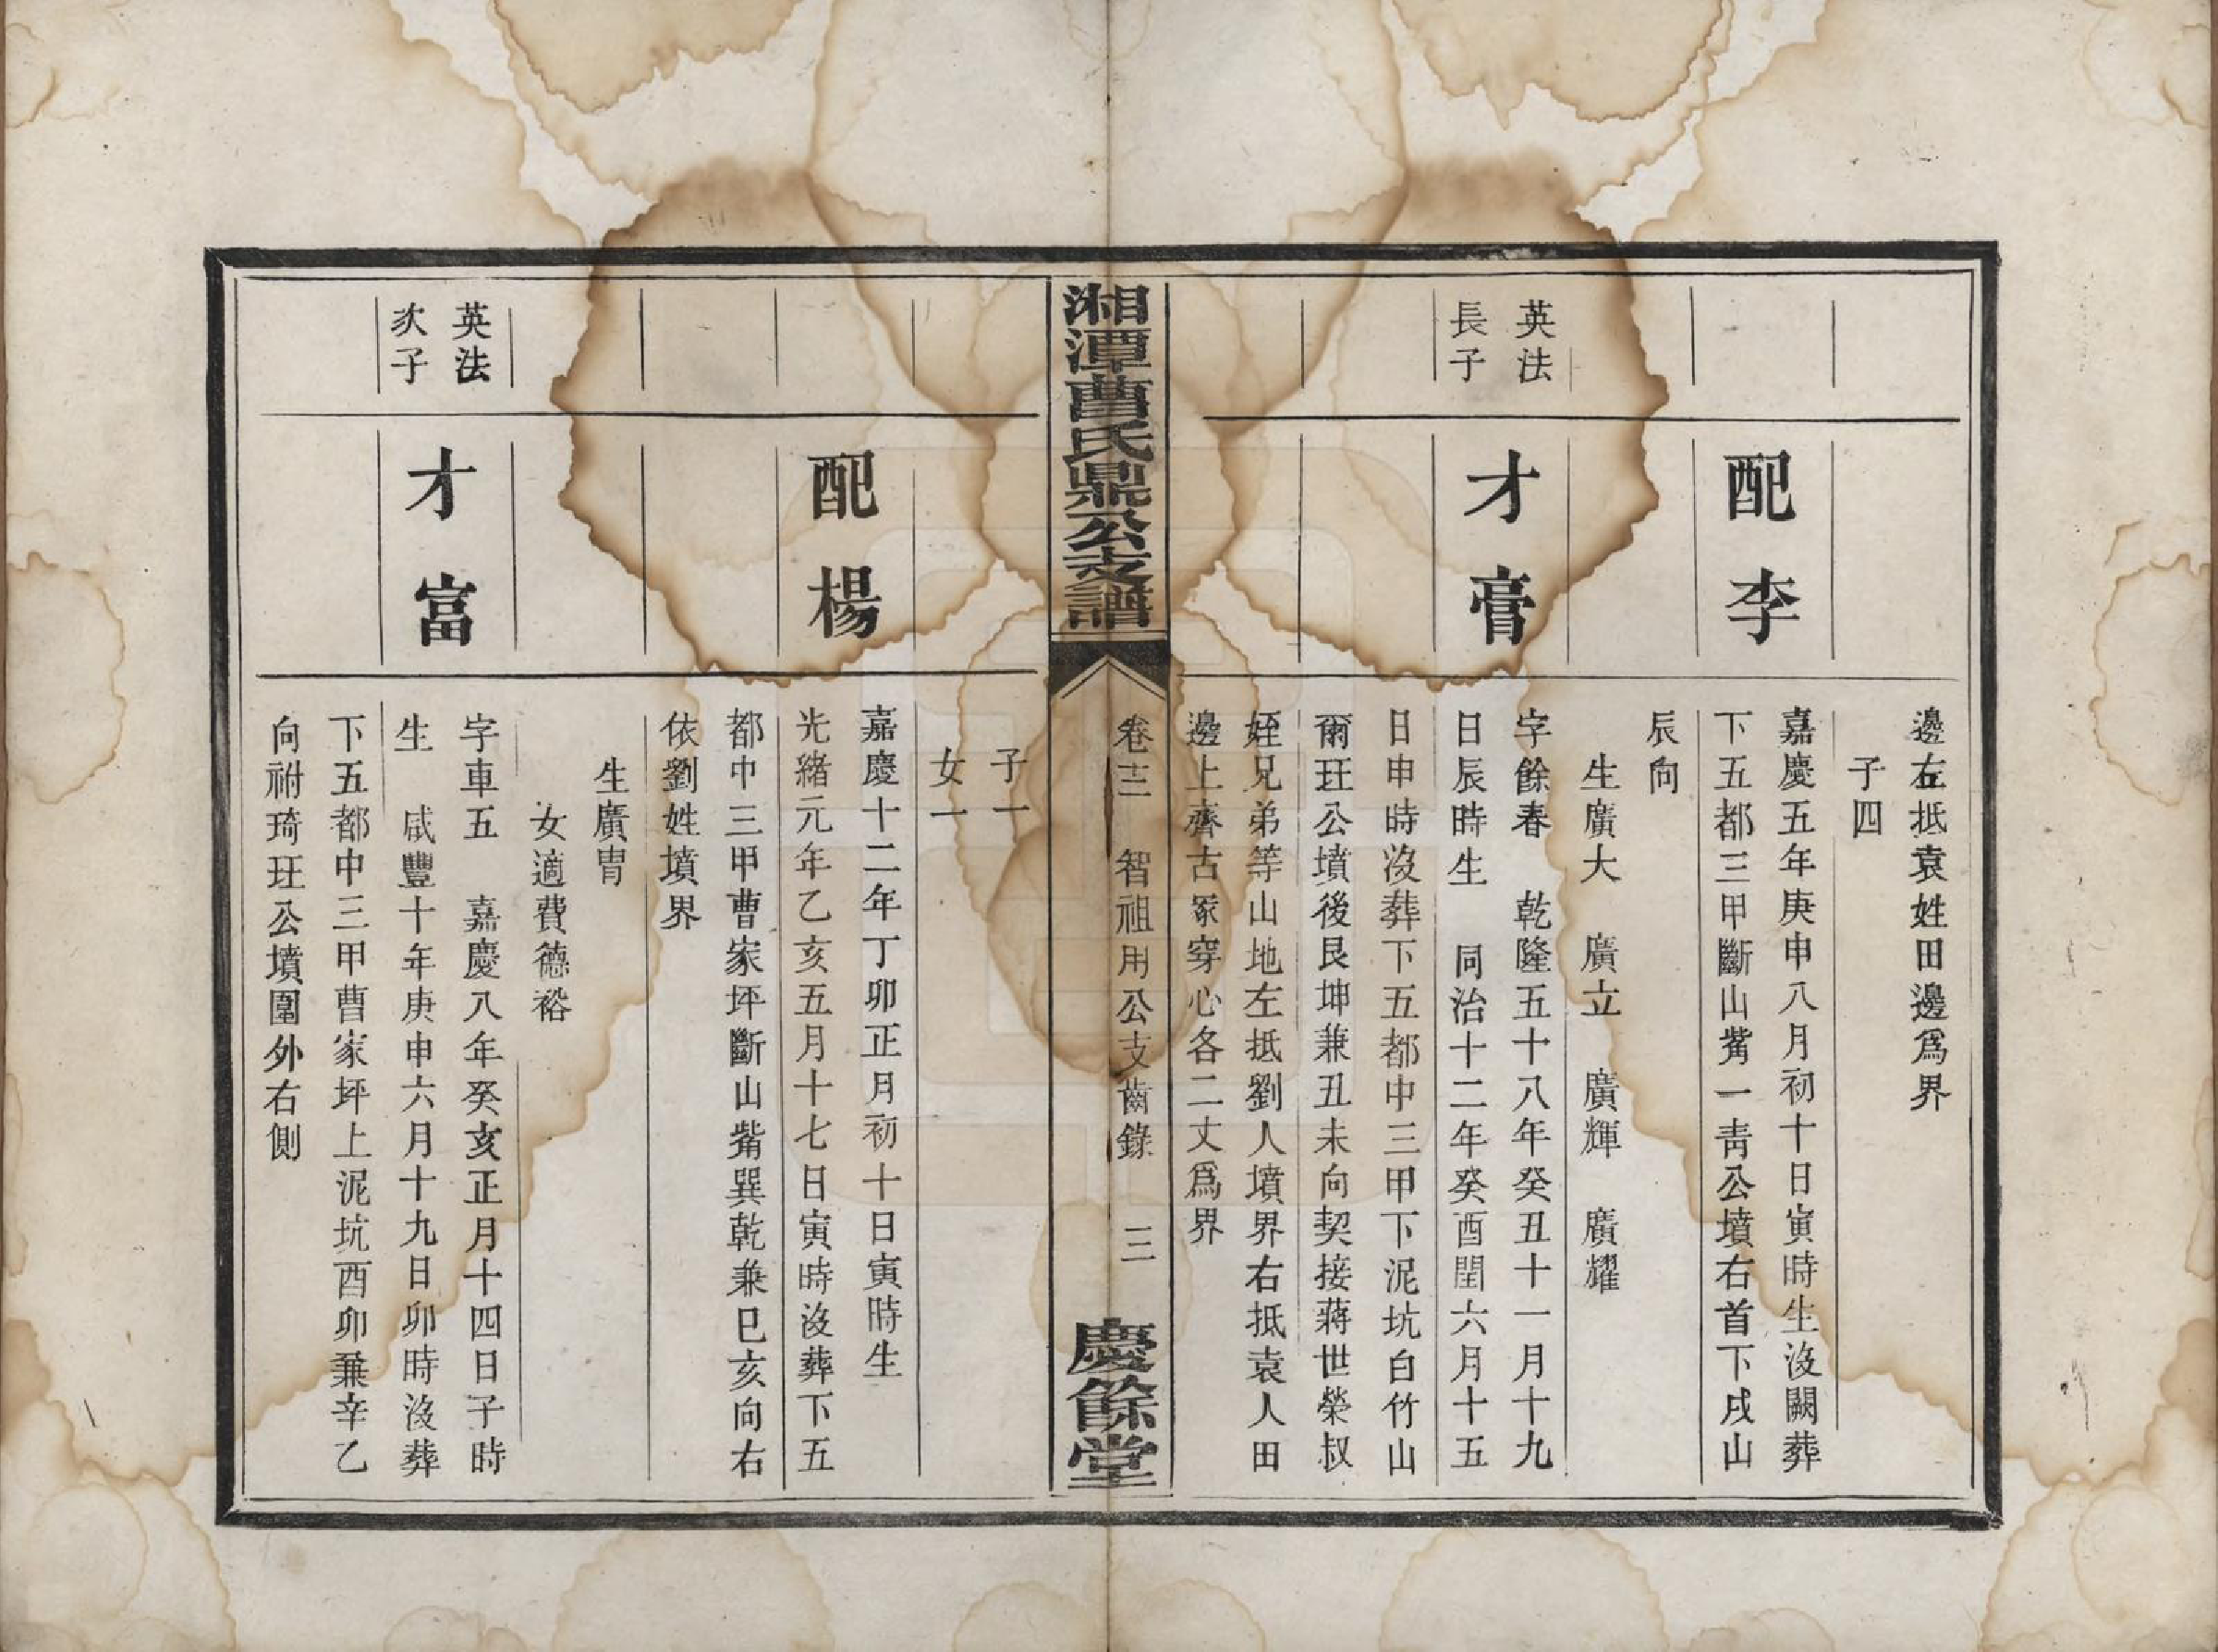 邊左抵袁姓田邊爲界
子四
配李
嘉慶五年庚申八月初十日寅時生沒闕葬
下五都三甲斷山觜一靑公墳右首下戌山
辰向
生廣大 廣立 廣輝 廣耀
英法
長子
才膏
字餘春 乾隆五十八年癸丑十一月十九
日辰時生 同治十二年癸酉閏六月十五
日申時沒葬下五都中三甲下泥坑白竹山
爾玨公墳後艮坤兼丑未向契接蔣世榮叔
姪兄弟等山地左抵劉人墳界右抵袁人田
邊上齊古冢穿心各二丈爲界
湘潭曹氏鼎公支譜
卷 智祖用公支齒錄 三
慶餘堂
子一
女一
配楊
嘉慶十二年丁卯正月初十日寅時生
光緒元年乙亥五月十七日寅時沒葬下五
都中三甲曹家坪斷山觜巽乾兼巳亥向右
依劉姓墳界
生廣冑
女適費德裕
英法
次子
才富
字車五 嘉慶八年癸亥正月十四日子時
生 咸豐十年庚申六月十九日卯時沒葬
下五都中三甲曹家坪上泥坑酉卯兼辛乙
向祔琦玨公墳圍外右側